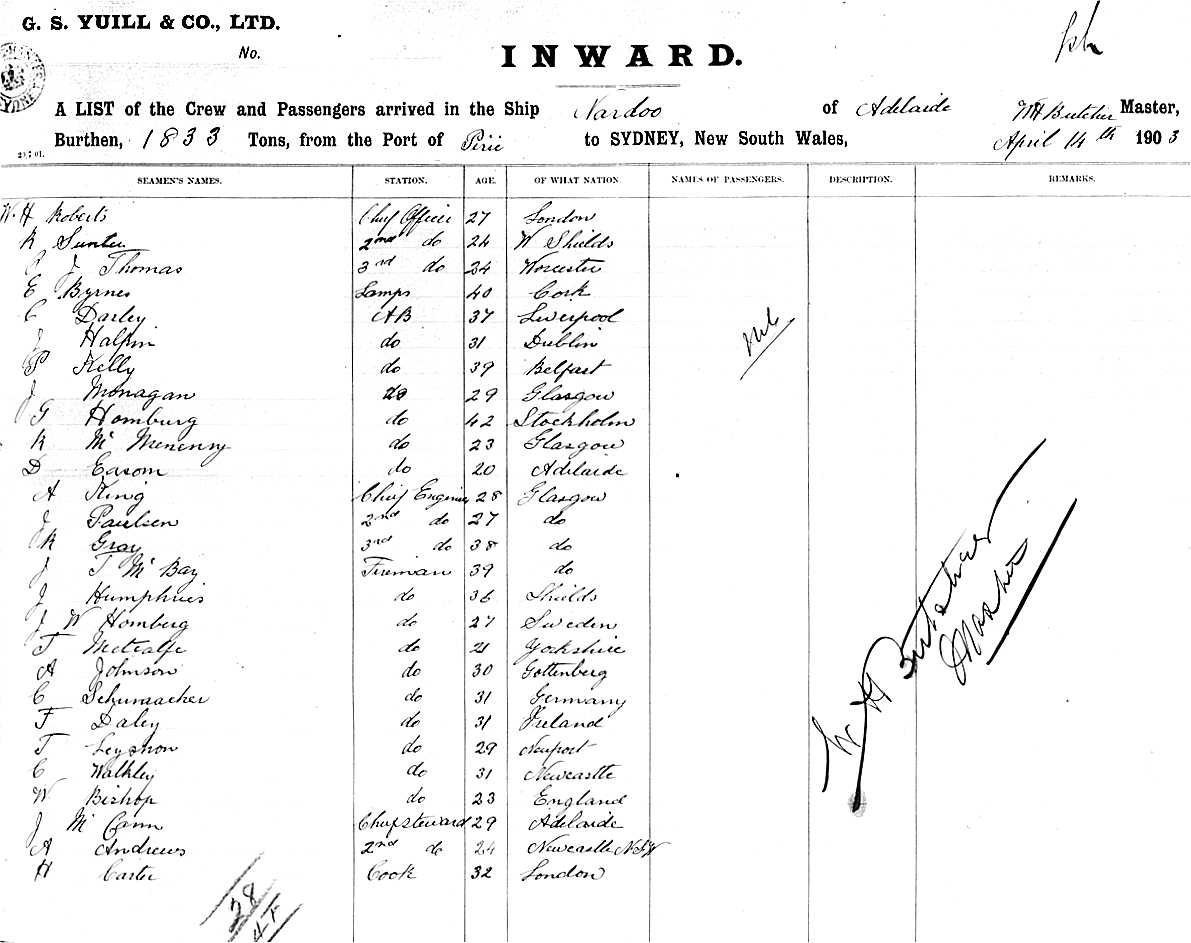 G. S. YUILL & CO., LTD.
No.
INWARD.
A LIST of the Crew and Passengers arrived in the Ship Nardoo of Adelaide WH Butcher Master,
Burthen, 1833 Tons, from the Port of Pirie to SYDNEY, New South Wales, April 14th 1903
SEAMEN'S NAMES. STATION. AGE. OF WHAT NATION NAMES OF PASSENGERS. DESCRIPTION. REMARKS.
W. H Roberts Chief Officer 27 London
R Sunter 2nd do 24 W Shields
J Thomas 3rd do 24 Worcester
E Byrnes Lamps 40 Cork
C Darley AB 37 Liverpool
J Halpin do 31 Dublin
P Kelly do 39 Belfast
J Monagan do 29 Glasgow
G Homburg do 42 Stockholm
R Mc Menenny do 23 Glasgow
D Eason do 20 Adelaide
A King Chief Engineer 28 Glasgow
J Paulsen 2nd do 27 do
R Gray 3rd do 38 do
J T Mc Bay Fireman 39 do
J Humphries do 36 Shields
J W Homberg do 27 Sweden
T Metcalfe do 21 Yorkshire
A Johnson do 30 Gottenberg
C Schumacher do 31 Germany
F Daley do 31 Ireland
T Leyshon do 29 Newport
C Walkley do 31 Newcastle
W Bishop do 23 England
J Mc Cann Chief steward 29 Adelaide
A Andrews 2nd do 24 Newcastle NSW
H Carter Cook 32 London
Nil
W H Butcher
Master
28